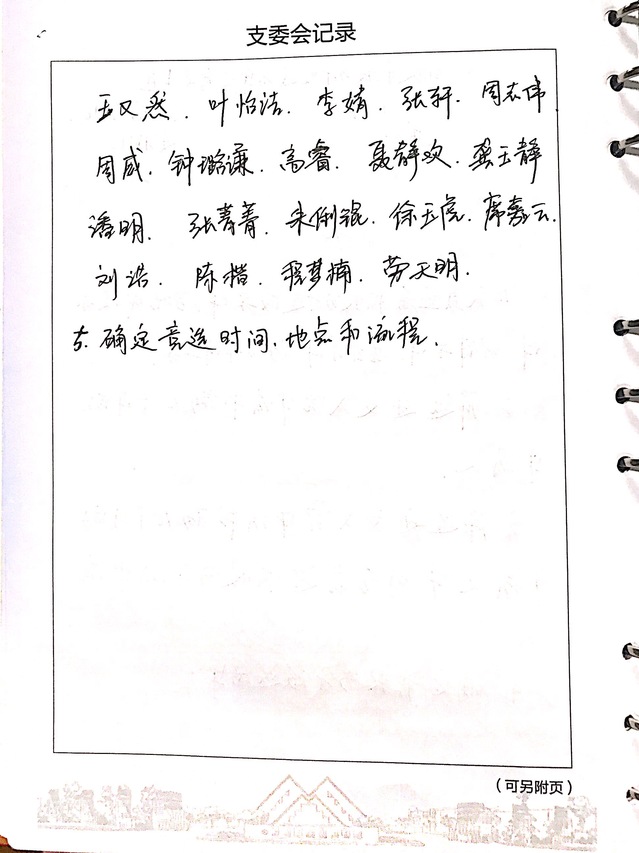 支委会记录
王又然、叶怡洁、李婧、张轩、周志伟
周成、钟璐谦、高睿、聂静欢、龚玉静
潘明、张菁菁、朱俐锟、徐玉虎、席嘉云、
刘浩、陈楷、程梦楠、劳天明.
5. 确定竞选时间、地点和流程.
（可另附页）